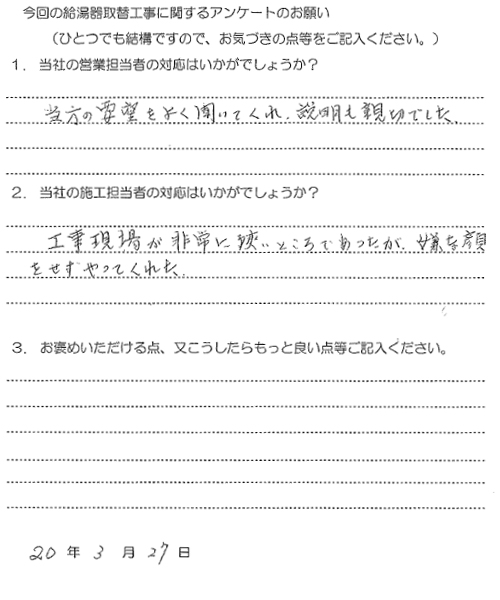 今回の給湯器取替工事に関するアンケートのお願い
（ひとつでも結構ですので、お気づきの点等をご記入ください。）
1．当社の営業担当者の対応はいかがでしょうか？
当方の要望をよく聞いてくれ、説明も親切でした。
2．当社の施工担当者の対応はいかがでしょうか？
工事現場が非常に狭いところであったが、嫌な顔
をせずやってくれた。
3．お褒めいただける点、又こうしたらもっと良い点等ご記入ください。
20 年 3 月 27 日